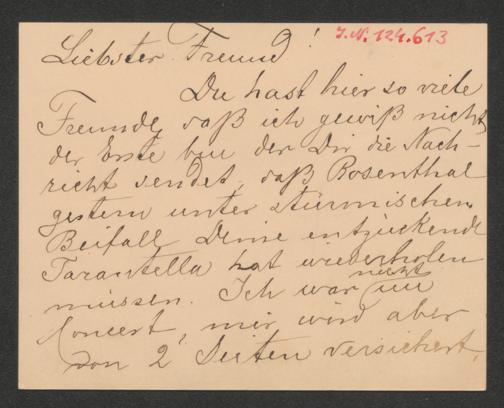 J.N. 124.613
Liebster Freund!
Du hast hier so viele
Freunde, daß ich gewiß nicht
der Erste bin der Dir die Nach-
richt sendet, daß Rosenthal
gestern unter stürmischem
Beifall Deine entzückende
Tarantella hat wiederholen
müssen. Ich war nicht im
Concert, mir wird aber
von 2 Seiten versichert,